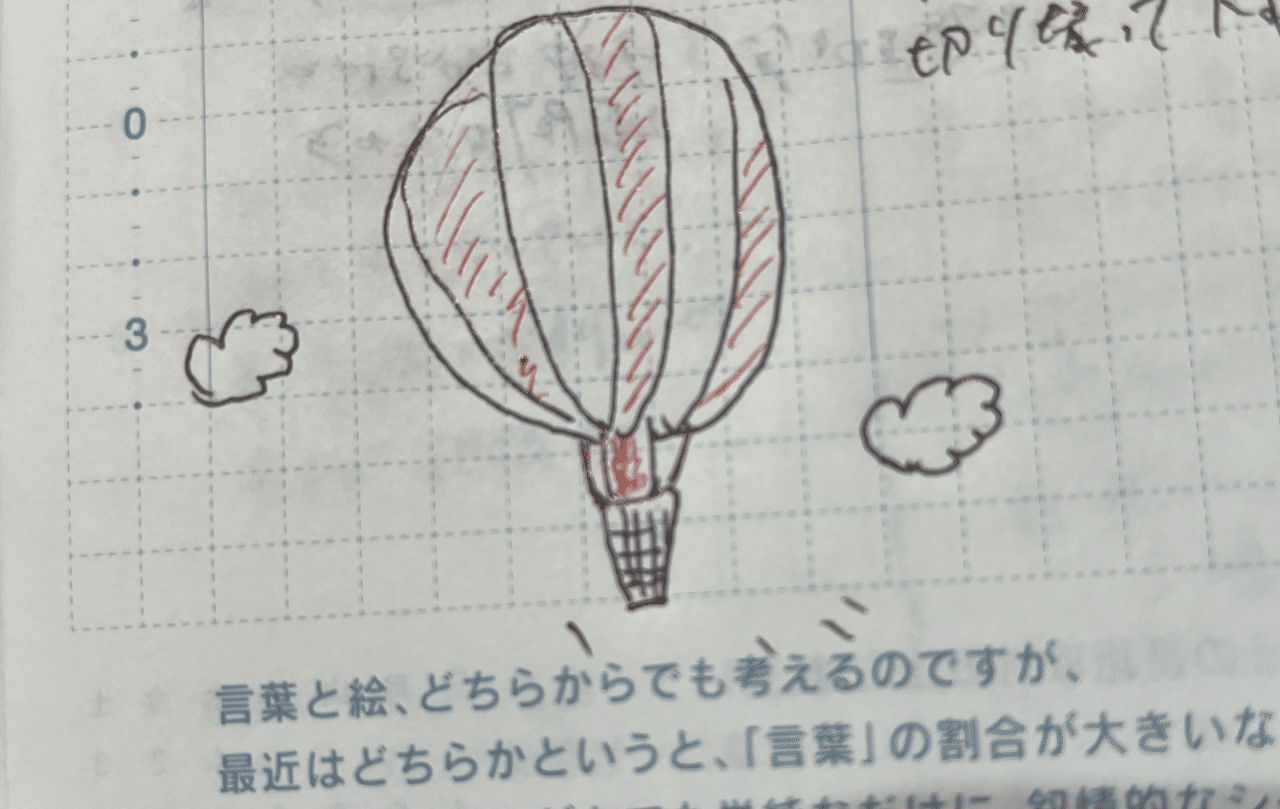 切り替って
0
3
言葉と絵、どちらからでも考えるのですが、
最近はどちらかというと、「言葉」の割合が大きいな